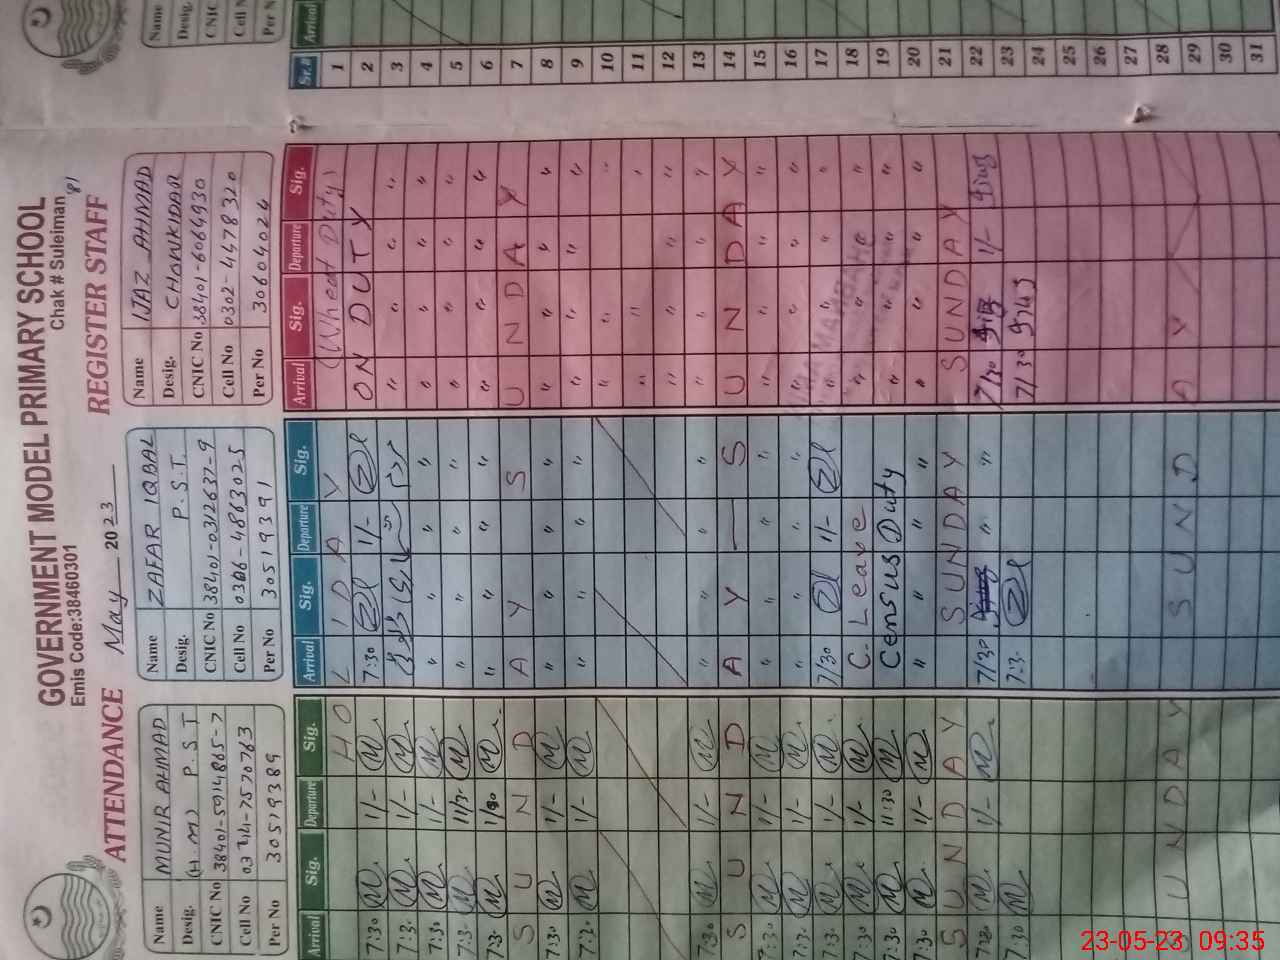 GOVERNMENT MODEL PRIMARY SCHOOL
Emis Code:38460301
Chak # Suleiman 81
ATTENDANCE May 2023 REGISTER STAFF
Name MUNIR AHMAD
Desig. (H.M) P.S.T
CNIC No 38401-5914865-7
Cell No 0344-7570763
Per No 30519389
Name ZAFAR IQBAL
Desig. P.S.T.
CNIC No 38401-0312637-9
Cell No 0306-4863025
Per No 30519391
Name IJAZ AHMAD
Desig. CHAWKIDAR
CNIC No 38401-6064930
Cell No 0302-4478320
Per No 30604024
Name
Desig.
CNIC
Cell N
Per N
Arrival Sig. Departure Sig. Arrival Sig. Departure Sig. Arrival Sig. Departure Sig. Sr.# Arrival
H O L I D A Y (Wheat Duty) 1
7:30 1/- 7:30 1/- ON DUTY 2
7:3. 1/- " " " " 3
7:30 1/- " " " " " " " " 4
7:3. 11/3. " " " " " " " " 5
7:3. 1/30 " " " " " " " " 6
S U N D A Y S U N D A Y 7
7:30 1/- " " " " " " " " 8
7:30 1/- " " " " " " " " 9
" " " 10
" " " 11
" " " " 12
7:30 1/- " " " " " " " " 13
S U N D A Y — S U N D A Y 14
7:30 1/- " " " " " " " " 15
7:3. 1/- " " " " " " " " 16
7:3. 1/- 7/30 1/- " " " " 17
7:30 1/- C. Leave " " " " 18
7:30 11:30 Census Duty " " " 19
7:30 1/- " " " " " " 20
S U N D A Y SUNDAY SUNDAY 21
7:30 1/- 7/30 " " 7/30 1/- 22
7:30 7:3. 7/30 23
24
25
26
27
S U N D A Y S U N D A Y 28
29
30
31
23-05-23 09:35